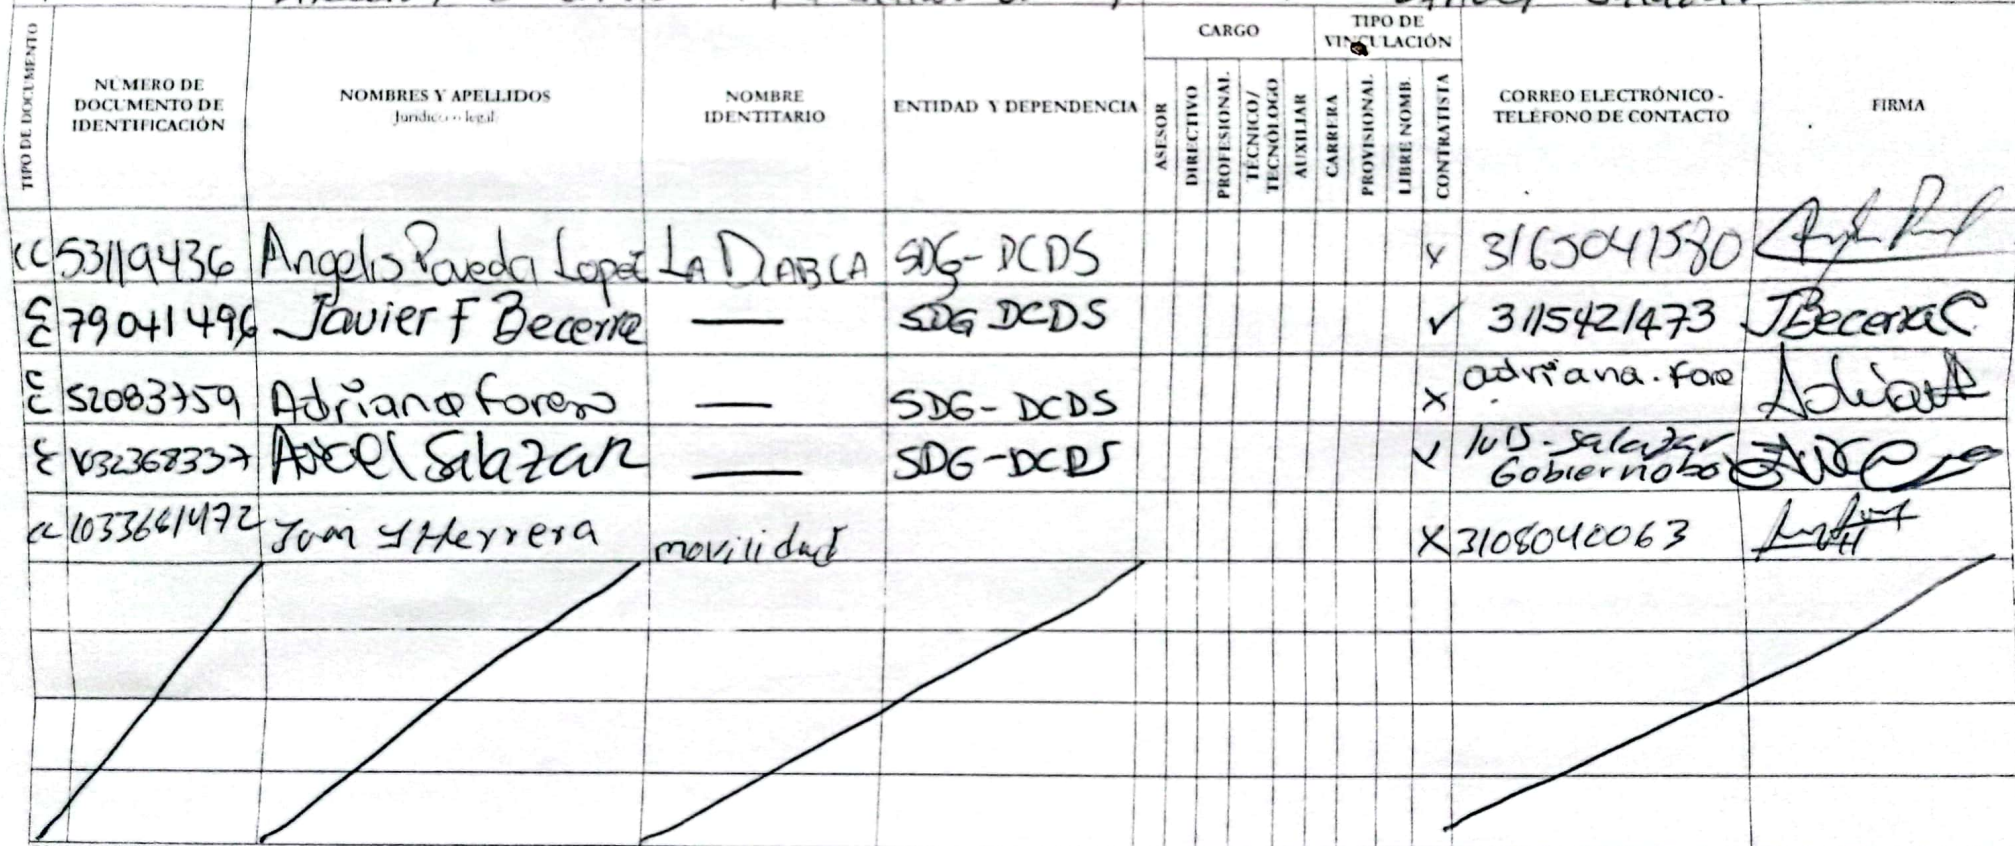 TIPO DE DOCUMENTO
NÚMERO DE
DOCUMENTO DE
IDENTIFICACIÓN
NOMBRES Y APELLIDOS
Jurídico o legal
NOMBRE
IDENTITARIO
ENTIDAD Y DEPENDENCIA
CARGO
ASESOR
DIRECTIVO
PROFESIONAL
TÉCNICO/
TECNÓLOGO
AUXILIAR
TIPO DE
VINCULACIÓN
CARRERA
PROVISIONAL
LIBRE NOMB.
CONTRATISTA
CORREO ELECTRÓNICO -
TELÉFONO DE CONTACTO
FIRMA
CC 53119436 Angelis Poveda Lopez LA DIABLA SDG-DCDS X 3165041580
CC 79041496 Javier F Becerra — SDG DCDS ✓ 3115421473 JBecerraC
CC 52083759 Adriana Forero — SDG-DCDS X adriana.fore
1032368337 Salazar — SDG-DCDS ✓ luis-salazar
Gobiernobo
CC Juan Herrera movilidad X 3108040063